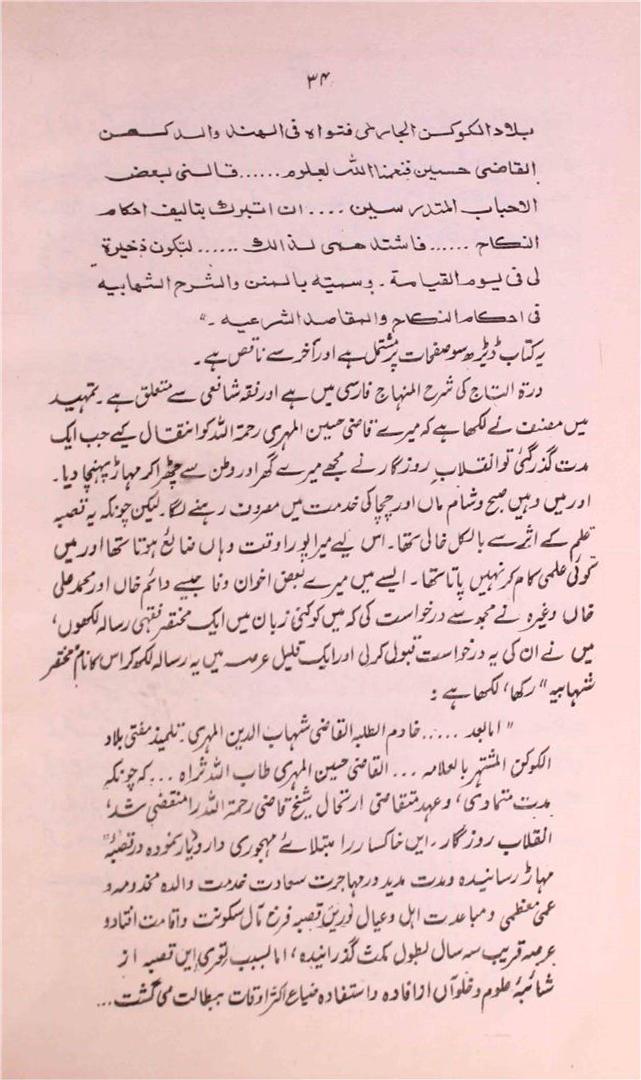 ۳۴
بلاد الکوکن الجاری فتواہ فی الھند والدکھن
القاضی حسین فنعمنا اللہ لعلوم ...... قالنی بعض
الاحباب المتدرسین .... ان اتبرک بتالیف احکام
النکاح ...... فاشتد ھمی لذالک ...... لتکون ذخیرۃ
لی فی یوم القیامۃ ۔ وسمیتہ بالمنن والشرح الشھابیہ
فی احکام النکاح والمقاصد الشرعیہ ۔"
یہ کتاب ڈیڑھ سو صفحات پر مشتمل ہے اور آخر سے ناقص ہے ۔
درۃ التاج کی شرح المنہاج فارسی میں ہے اور فقہ شافعی سے متعلق ہے ۔ تمہید
میں مصنف نے لکھا ہے کہ میرے قاضی حسین المہری رحمۃ اللہ کو انتقال کیے جب ایک
مدت گذر گئی تو انقلاب روزگار نے مجھے میرے گھر اور وطن سے چھڑا کر مہاڑ پہنچا دیا ۔
اور میں وہیں صبح و شام ماں اور چچا کی خدمت میں مصروف رہنے لگا ۔ لیکن چونکہ یہ قصبہ
علم کے اثر سے بالکل خالی تھا ۔ اس لیے میرا پورا وقت وہاں ضائع ہوتا تھا اور میں
کوئی علمی کام کر نہیں پاتا تھا ۔ ایسے میں میرے بعض اخوان وفا جیسے دائم خاں اور محمد علی
خاں وغیرہ نے مجھ سے درخواست کی کہ میں کوکنی زبان میں ایک مختصر فقہی رسالہ لکھوں ،
میں نے ان کی یہ درخواست قبول کرلی اور ایک قلیل عرصہ میں یہ رسالہ لکھ کر اس کا نام "مختصر
شہابیہ" رکھا ، لکھا ہے :
" امابعد ..... خادم الطلبہ القاضی شہاب الدین المہری ۔ تلمیذ مفتی بلاد
الکوکن المشتہر بالعلامہ ... القاضی حسین المہری طاب اللہ ثراہ ... کہ چونکہ
مدت متمادی ، و عہد متقاضی ارتحال شیخ قاضی رحمۃ اللہ را منقضی شد ،
انقلاب روزگار ۔ ایں خاکسار را مبتلائے مہجوری دار و دیار نمودہ در قصبۂ
مہاڑ رسانیدہ و مدت مدید در مہاجرت سعادت خدمت والدہ مخدومہ و
عمی معظمی و مباعدت اہل و عیال قصبہ سکونت و اقامت افتاد و
عرصہ قریب سہ سال بطول مکث گذرانیدہ ، اما بسبب ایں قصبہ از
شائبۂ علوم و خلو آں از افادہ و استفادہ ضیاع اکثر اوقات ببطالت می گشت ...